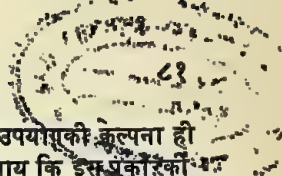 ८१
उपयोगकी कल्पना ही
जाय कि इस प्रकारकी